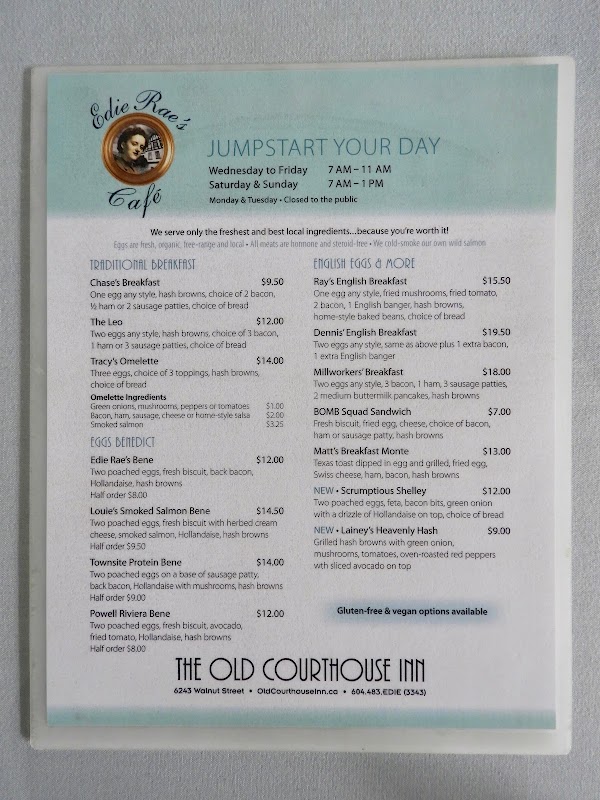 Edie Rae's
Café
JUMPSTART YOUR DAY
Wednesday to Friday 7 AM – 11 AM
Saturday & Sunday 7 AM – 1 PM
Monday & Tuesday • Closed to the public
We serve only the freshest and best local ingredients...because you're worth it!
Eggs are fresh, organic, free-range and local • All meats are hormone and steroid-free • We cold-smoke our own wild salmon
TRADITIONAL BREAKFAST
Chase's Breakfast $9.50
One egg any style, hash browns, choice of 2 bacon,
½ ham or 2 sausage patties, choice of bread
The Leo $12.00
Two eggs any style, hash browns, choice of 3 bacon,
1 ham or 3 sausage patties, choice of bread
Tracy's Omelette $14.00
Three eggs, choice of 3 toppings, hash browns,
choice of bread
Omelette Ingredients
Green onions, mushrooms, peppers or tomatoes $1.00
Bacon, ham, sausage, cheese or home-style salsa $2.00
Smoked salmon $3.25
EGGS BENEDICT
Edie Rae's Bene $12.00
Two poached eggs, fresh biscuit, back bacon,
Hollandaise, hash browns
Half order $8.00
Louie's Smoked Salmon Bene $14.50
Two poached eggs, fresh biscuit with herbed cream
cheese, smoked salmon, Hollandaise, hash browns
Half order $9.50
Townsite Protein Bene $14.00
Two poached eggs on a base of sausage patty,
back bacon, Hollandaise with mushrooms, hash browns
Half order $9.00
Powell Riviera Bene $12.00
Two poached eggs, fresh biscuit, avocado,
fried tomato, Hollandaise, hash browns
Half order $8.00
ENGLISH EGGS & MORE
Ray's English Breakfast $15.50
One egg any style, fried mushrooms, fried tomato,
2 bacon, 1 English banger, hash browns,
home-style baked beans, choice of bread
Dennis' English Breakfast $19.50
Two eggs any style, same as above plus 1 extra bacon,
1 extra English banger
Millworkers' Breakfast $18.00
Two eggs any style, 3 bacon, 1 ham, 3 sausage patties,
2 medium buttermilk pancakes, hash browns
BOMB Squad Sandwich $7.00
Fresh biscuit, fried egg, cheese, choice of bacon,
ham or sausage patty, hash browns
Matt's Breakfast Monte $13.00
Texas toast dipped in egg and grilled, fried egg,
Swiss cheese, ham, bacon, hash browns
NEW • Scrumptious Shelley $12.00
Two poached eggs, feta, bacon bits, green onion
with a drizzle of Hollandaise on top, choice of bread
NEW • Lainey's Heavenly Hash $9.00
Grilled hash browns with green onion,
mushrooms, tomatoes, oven-roasted red peppers
wth sliced avocado on top
Gluten-free & vegan options available
THE OLD COURTHOUSE INN
6243 Walnut Street • OldCourthouseInn.ca • 604.483.EDIE (3343)